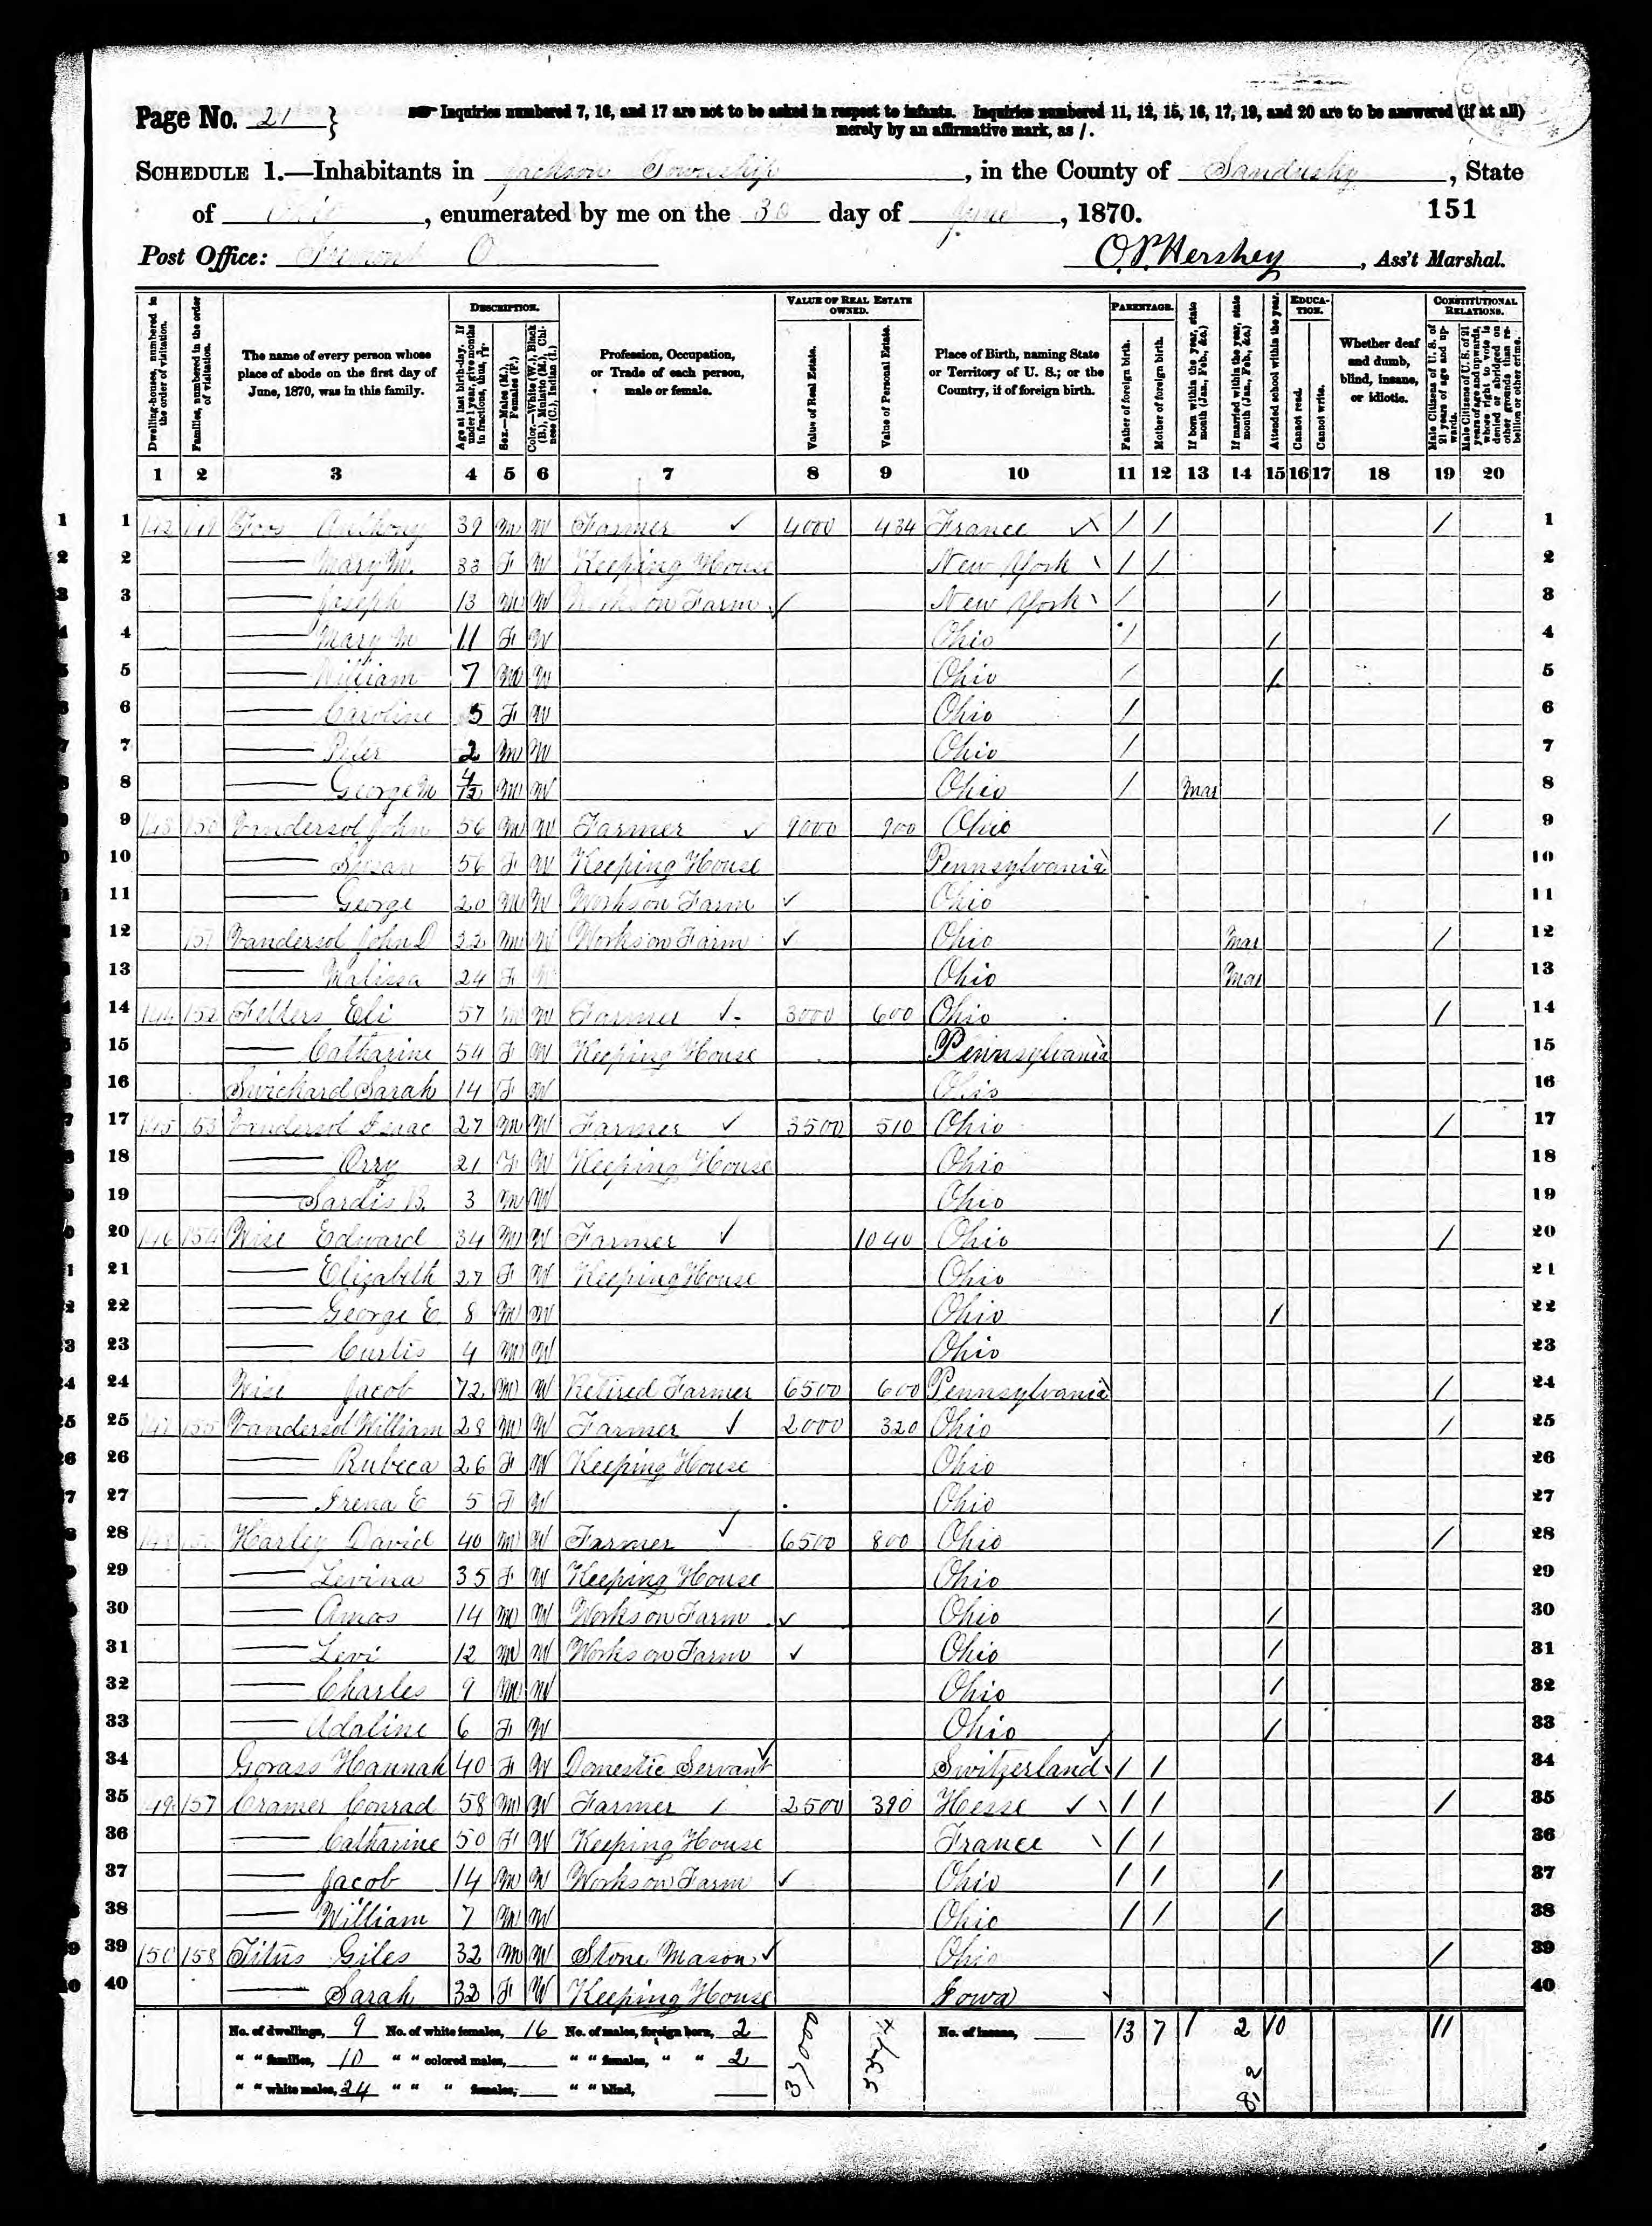 Page No. 21 }
Inquiries numbered 7, 16, and 17 are not to be asked in respect to infants. Inquiries numbered 11, 12, 15, 16, 17, 19, and 20 are to be answered (if at all)
merely by an affirmative mark, as /.
SCHEDULE 1.—Inhabitants in Jackson Township, in the County of Sandusky, State
of Ohio, enumerated by me on the 30 day of June, 1870. 151
Post Office: Fremont O O.P. Hershey, Ass't Marshal.
Dwelling-houses, numbered in the order of visitation.
Families, numbered in the order of visitation.
The name of every person whose place of abode on the first day of June, 1870, was in this family.
DESCRIPTION.
Age at last birth-day. If under 1 year, give months in fractions, thus, 3/12
Sex.—Males (M.), Females (F.)
Color.—White (W.), Black (B.), Mulatto (M.), Chinese (C.), Indian (I.)
Profession, Occupation, or Trade of each person, male or female.
VALUE OF REAL ESTATE OWNED.
Value of Real Estate.
Value of Personal Estate.
Place of Birth, naming State or Territory of U. S.; or the Country, if of foreign birth.
PARENTAGE.
Father of foreign birth.
Mother of foreign birth.
If born within the year, state month (Jan., Feb., &c.)
If married within the year, state month (Jan., Feb., &c.)
Attended school within the year.
EDUCATION.
Cannot read.
Cannot write.
Whether deaf and dumb, blind, insane, or idiotic.
CONSTITUTIONAL RELATIONS.
Male Citizens of U. S. of 21 years of age and upwards.
Male Citizens of U. S. of 21 years of age and upwards, whose right to vote is denied or abridged on other grounds than rebellion or other crime.
1 2 3 4 5 6 7 8 9 10 11 12 13 14 15 16 17 18 19 20
1 142 149 Foos Anthony 39 M W Farmer ✓ 4000 434 France / / / 1
2 — Mary M. 33 F W Keeping House New York / / 2
3 — Joseph 13 M W Works on Farm ✓ New York / / 3
4 — Mary M 11 F W Ohio / / 4
5 — William 7 M W Ohio / / 5
6 — Caroline 5 F W Ohio / 6
7 — Peter 2 M W Ohio / 7
8 — George M 4/12 M W Ohio / Mar 8
9 143 150 Vandersol John 56 M W Farmer ✓ 9000 900 Ohio / 9
10 — Susan 56 F W Keeping House Pennsylvania 10
11 — George 20 M W Works on Farm ✓ Ohio 11
12 151 Vandersol John D 22 M W Works on Farm ✓ Ohio Mar / 12
13 — Malissa 24 F W Ohio Mar 13
14 144 152 Fetters Eli 57 M W Farmer ✓ 3000 600 Ohio / 14
15 — Catharine 54 F W Keeping House Pennsylvania 15
16 Swickard Sarah 14 F W Ohio 16
17 145 153 Vandersol Isaac 27 M W Farmer ✓ 3500 510 Ohio / 17
18 — Orry 21 F W Keeping House Ohio 18
19 — Sardis B. 3 M W Ohio 19
20 146 154 Wise Edward 34 M W Farmer ✓ 1040 Ohio / 20
21 — Elizabeth 27 F W Keeping House Ohio 21
22 — George E. 8 M W Ohio / 22
23 — Curtis 4 M W Ohio 23
24 Wise Jacob 72 M W Retired Farmer 6500 600 Pennsylvania / 24
25 147 155 Vandersol William 28 M W Farmer ✓ 2000 320 Ohio / 25
26 — Rubeca 26 F W Keeping House Ohio 26
27 — Irena E 5 F W Ohio 27
28 148 156 Harley David 40 M W Farmer ✓ 6500 800 Ohio / 28
29 — Levina 35 F W Keeping House Ohio 29
30 — Amos 14 M W Works on Farm ✓ Ohio / 30
31 — Levi 12 M W Works on Farm ✓ Ohio / 31
32 — Charles 9 M W Ohio / 32
33 — Adaline 6 F W Ohio / 33
34 Gorass Hannah 40 F W Domestic Servant ✓ Switzerland / / 34
35 149 157 Cramer Conrad 58 M W Farmer / 2500 390 Hesse ✓ / / / 35
36 — Catharine 50 F W Keeping House France / / 36
37 — Jacob 14 M W Works on Farm ✓ Ohio / / / 37
38 — William 7 M W Ohio / / / 38
39 150 158 Titus Giles 32 M W Stone Mason ✓ Ohio / 39
40 — Sarah 32 F W Keeping House Iowa 40
No. of dwellings, 9 No. of white females, 16 No. of males, foreign born, 2 37000 No. of insane, 13 7 1 2 10 11
" " families, 10 " " colored males, " " females, " " 2
" " white males, 24 " " " females, " " blind,